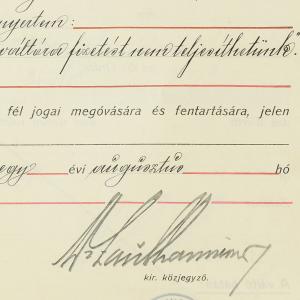 nyertem:
váltóra fizetést nem teljesíthetünk."
fél jogai megóvására és fentartására, jelen
egy évi augusztus hó
kir. közjegyző.